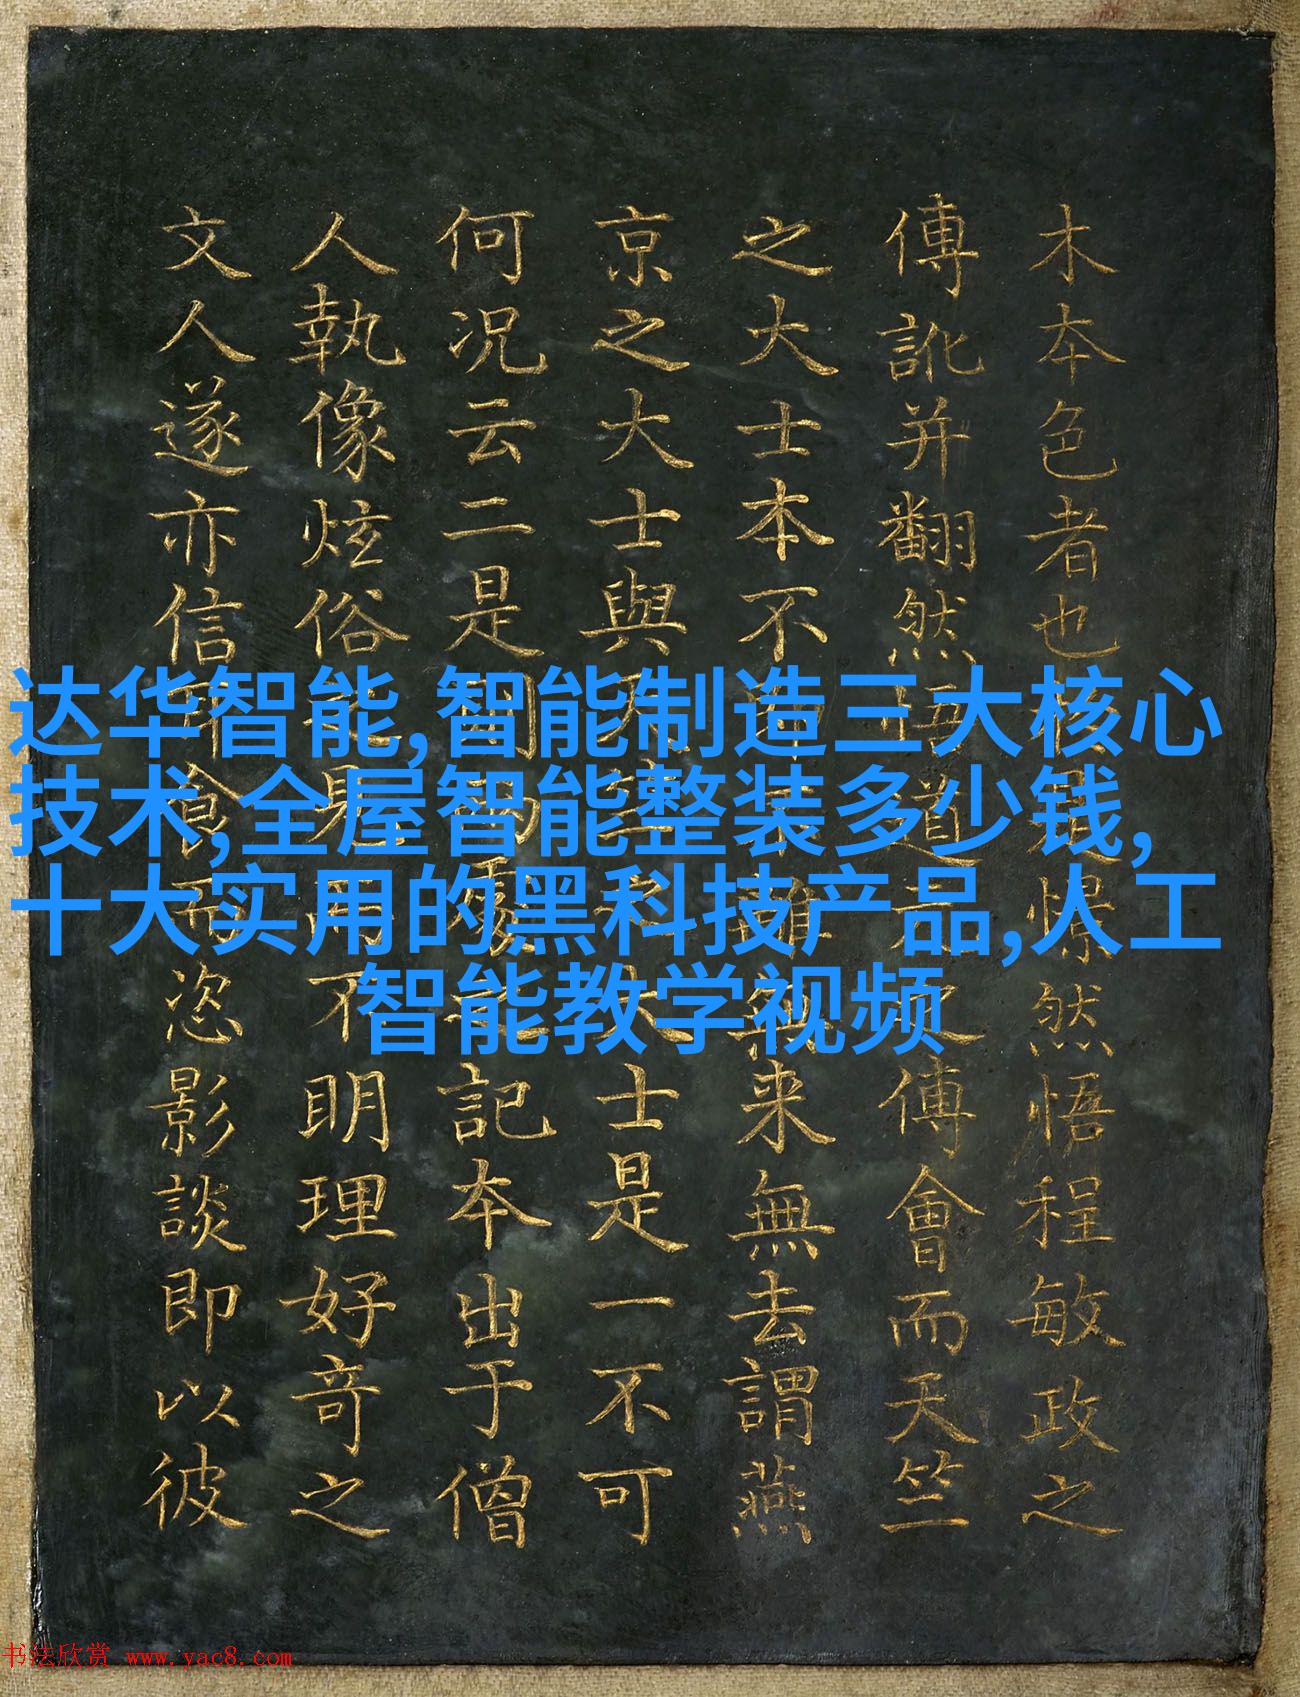 木本色者也憬然悟程敏政之
傳訛并翻然悟道之傅會而天竺
之大士本不雖無来無去謂燕
京之大士與天竺之大士是一不可
何况云二是則記本出于僧
人執像炫俗之見而不明理好奇之
文人遂亦信耳食而恣影談即以彼
达华智能,智能制造三大核心
技术,全屋智能整装多少钱,
十大实用的黑科技产品,人工
智能教学视频
书法欣赏 www.yac8.com